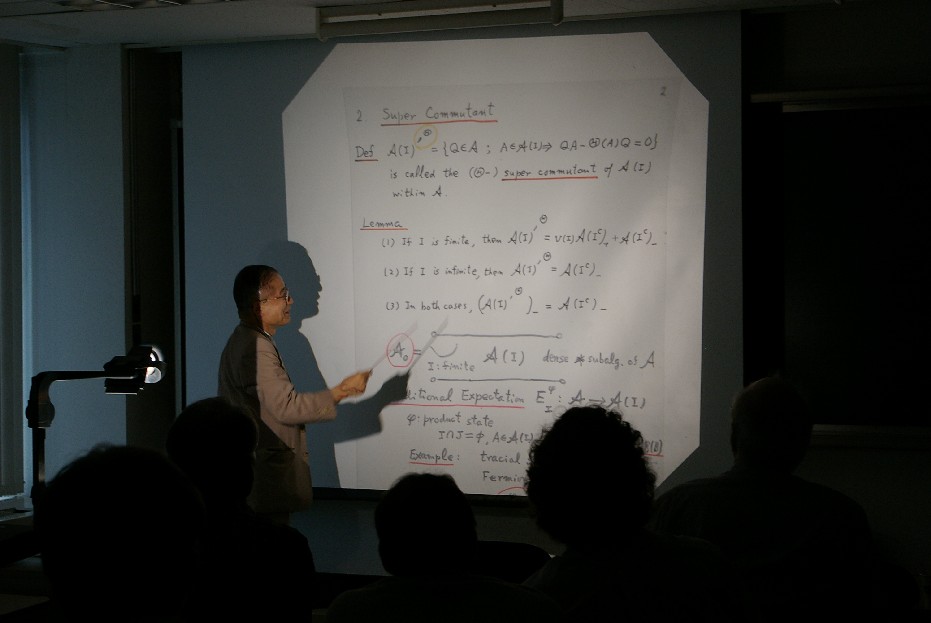 2
2 Super Commutant
Def A(I)'^Θ = {Q∈A ; A∈A(I)⇒ QA-Θ(A)Q=0}
is called the (Θ-) super commutant of A(I)
within A.
Lemma
(1) If I is finite, then A(I)'^Θ = v(I)A(I^c)_- + A(I^c)_-
(2) If I is infinite, then A(I)'^Θ = A(I^c)_-
(3) In both cases, (A(I)'^Θ)_- = A(I^c)_-
A_0 = I:finite A(I) dense * subalg. of A
ditional Expectation E_I^φ : A → A(I)
φ: product state
I∩J=φ, A∈A(I)
Example: tracial